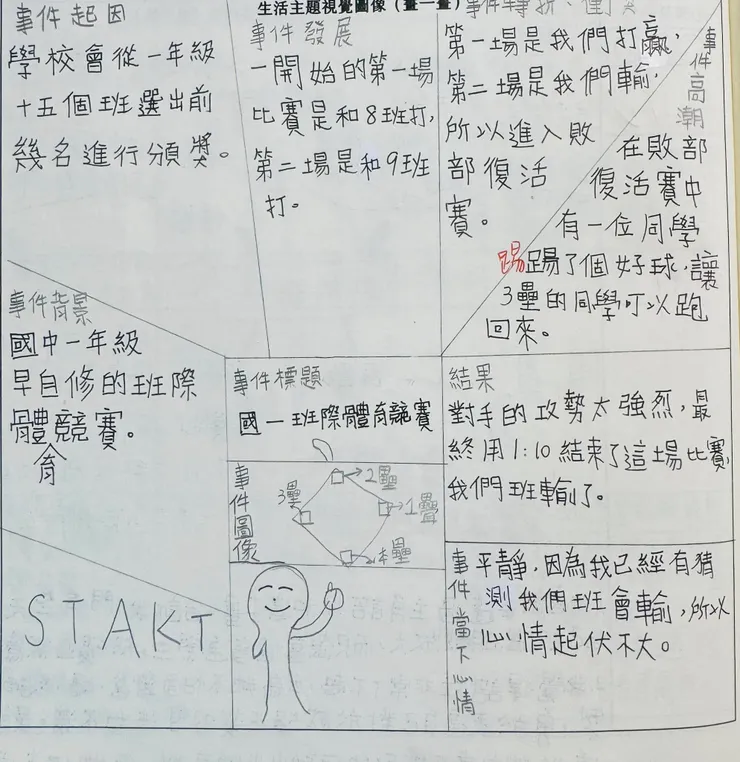 生活主題視覺圖像（畫一畫）
事件起因
學校會從一年級
十五個班選出前
幾名進行頒獎。
事件發展
一開始的第一場
比賽是和8班打，
第二場是和9班
打。
事件轉折、衝突
第一場是我們打贏，
第二場是我們輸，
所以進入敗
部復活
賽。
事件高潮
在敗部
復活賽中
有一位同學
踢踢了個好球，讓
3壘的同學可以跑
回來。
事件背景
國中一年級
早自修的班際
體競賽。
育
事件標題
國一班際體育競賽
事件圖像
2壘
3壘
1壘
本壘
結果
對手的攻勢太強烈，最
終用1:10結束了這場比賽，
我們班輸了。
事件當下心情
平靜，因為我已經有猜
測我們班會輸，所以
心情起伏不大。
START